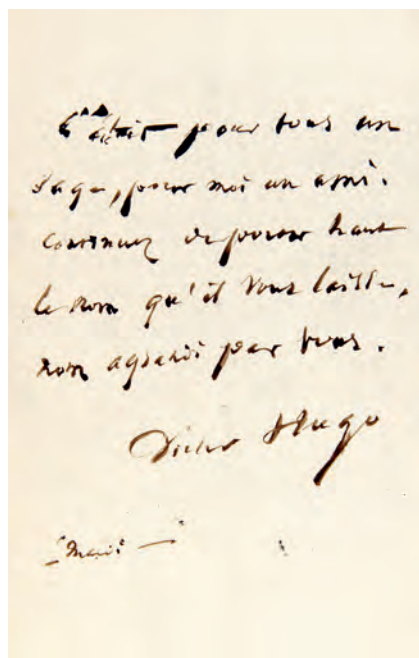 C'était pour tous un
sage, pour moi un ami.
Continuez de porter haut
le nom qu'il vous laisse,
nom agrandi par vous.
Victor Hugo